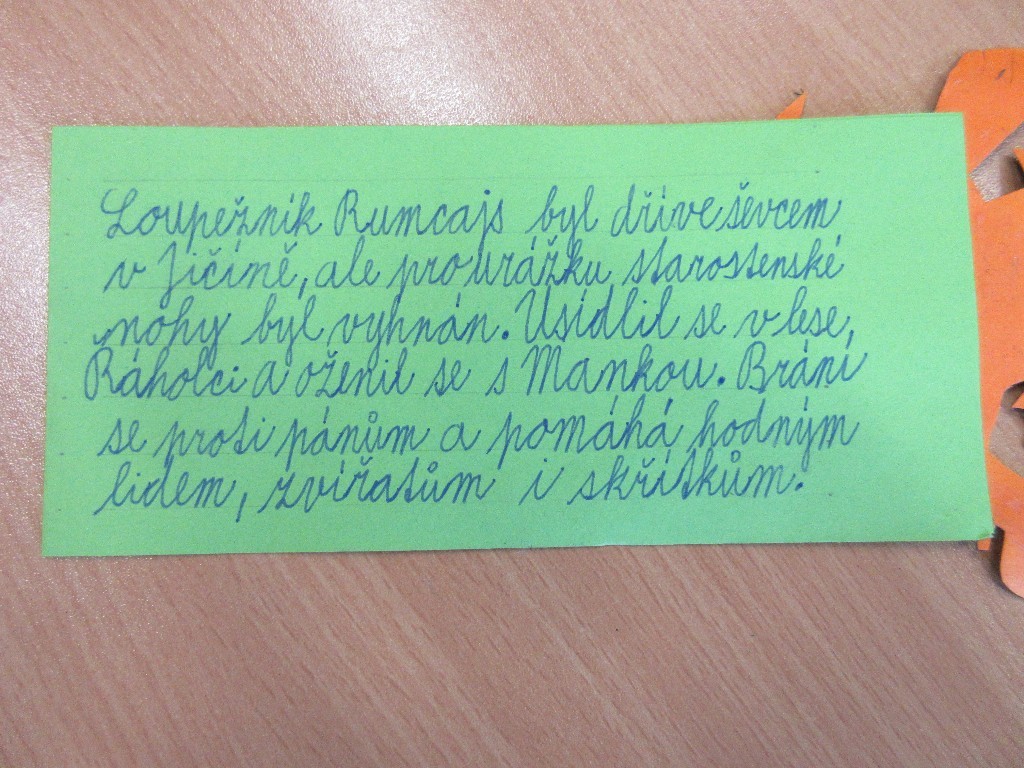 Loupežník Rumcajs byl dříve ševcem
v Jičíně, ale pro urážku starostenské
nohy byl vyhnán. Usídlil se v lese,
Ráholci a oženil se s Mankou. Brání
se proti pánům a pomáhá hodným
lidem, zvířatům i skřítkům.